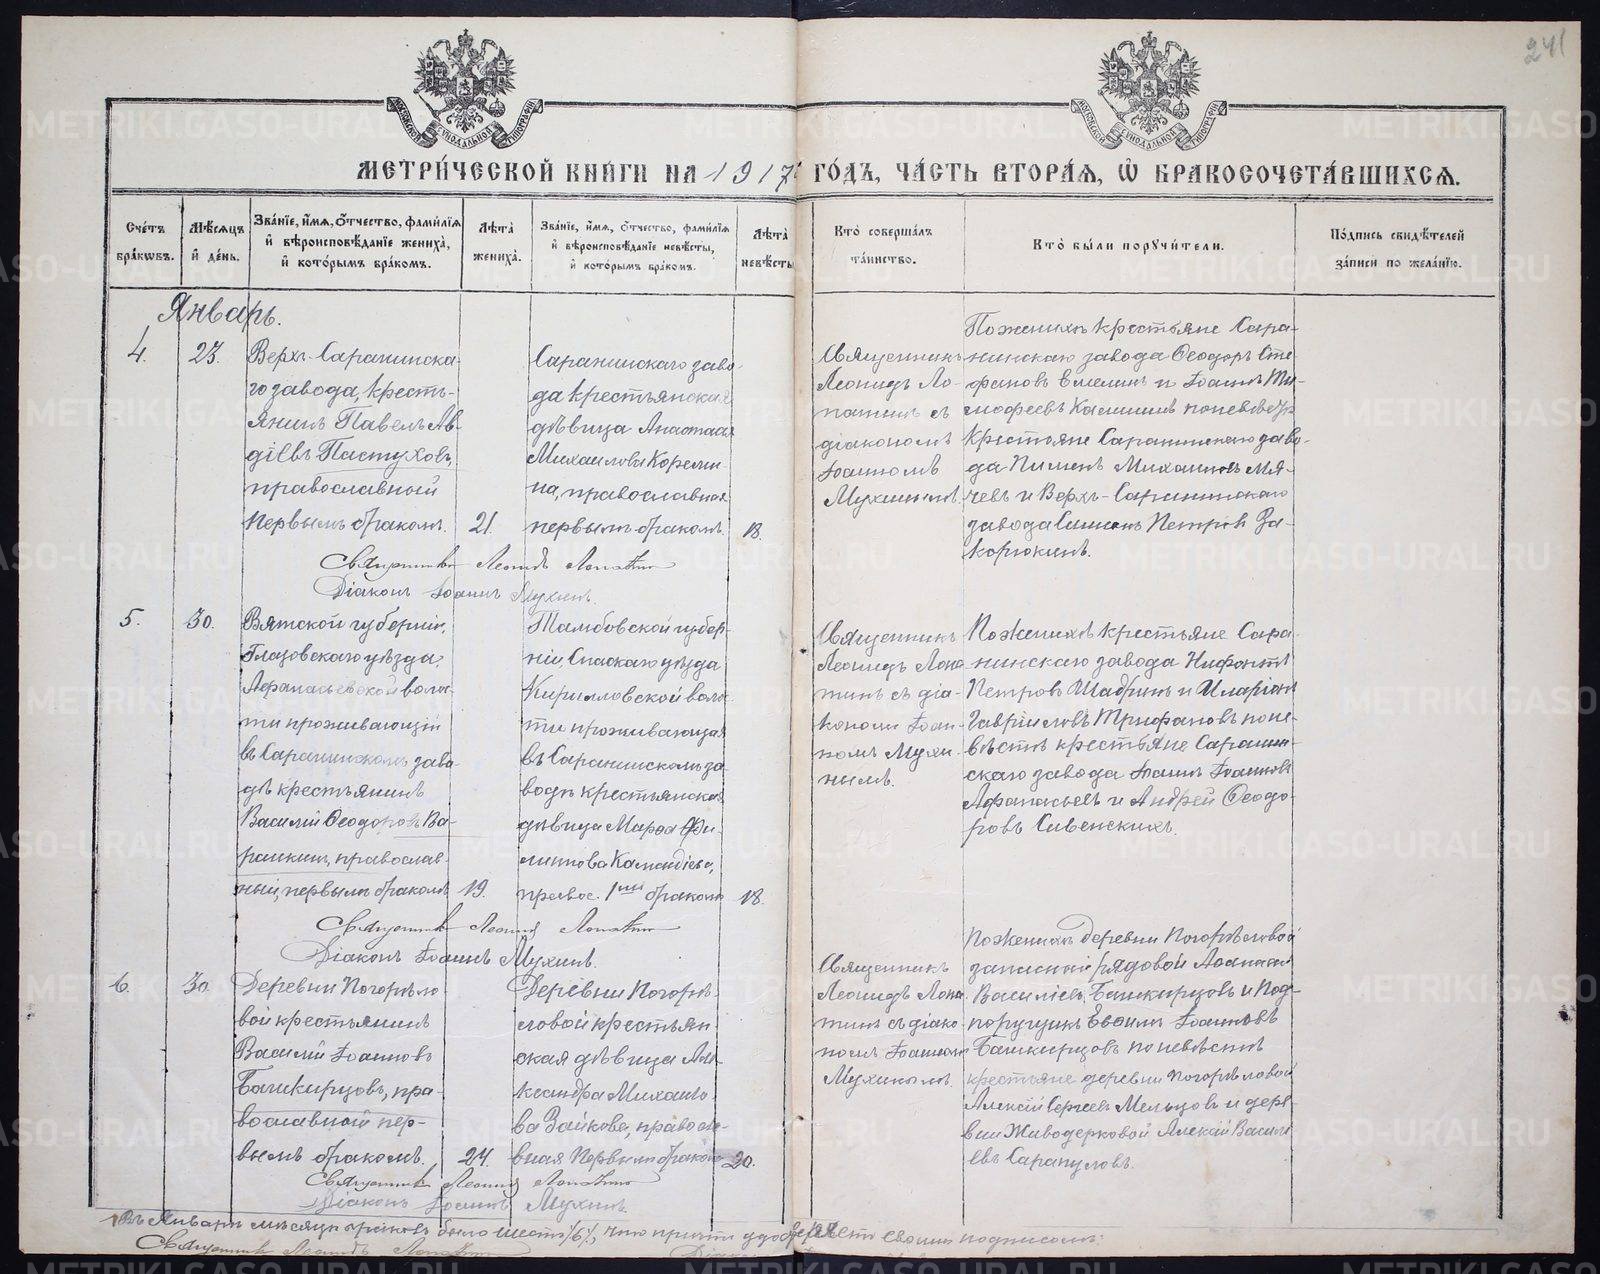 241
МЕТРИ́ЧЕСКОЙ КНИ́ГИ НА 1917 ГО́ДЪ, ЧА́СТЬ ВТОРА́Я, Ѽ БРАКОСОЧЕТА́ВШИХСЯ.
Сче́тъ бра́кѡвъ.
Мѣ́сяцъ и҆ де́нь.
Зва́нїе, и҆́мѧ, ѻ҆́тчество, фами́лїѧ и҆ вѣроисповѣ́данїе жениха̀, и҆ кото́рымъ бра́комъ.
Лѣ́та жениха̀.
Зва́нїе, и҆́мѧ, ѻ҆́тчество, фами́лїѧ и҆ вѣроисповѣ́данїе невѣ́сты, и҆ кото́рымъ бра́комъ.
Лѣ́та невѣ́сты
Кто̀ соверша́лъ та́инство.
Кто̀ бы́ли поручи́тели.
По́дпись свидѣ́телей за́писи по жела́нїю.
Январь.
4.
23.
Верхъ-Саранинска-
го завода, кресть-
янинъ Павелъ Ав-
діевъ Пастуховъ,
православный
первымъ бракомъ.
21.
Саранинскаго заво-
да крестьянская
дѣвица Анастасія
Михаилова Корели-
на, православная
первымъ бракомъ.
18.
Священникъ
Леонидъ Ло-
патинъ съ
діакономъ
Іоанномъ
Мухинымъ.
По женихѣ крестьяне Сара-
нинскаго завода Ѳеодоръ Сте
фановъ Емелинъ и Іоаннъ Ти-
мофеевъ Калининъ по невѣстѣ
крестьяне Саранинскаго заво-
да Пименъ Михаиловъ Мя-
чевъ и Верхъ-Саранинскаго
завода Симеонъ Петровъ За-
корюкинъ.
Священникъ Леонидъ Лопатинъ
Діаконъ Іоаннъ Мухинъ.
5.
30.
Вятской губерніи,
Глазовскаго уѣзда,
Афанасьевской воло-
сти проживающій
въ Саранинскомъ заво-
дѣ крестьянинъ
Василій Ѳеодоровъ Ва-
ранкинъ, православ-
ный, первымъ бракомъ
19.
Тамбовской губер-
ніи, Спаскаго уѣзда
Кирилловской воло-
сти проживающая
въ Саранинскомъ за-
водѣ крестьянская
дѣвица Марѳа Фи-
липпова
правос. 1ым бракомъ
18.
Священникъ
Леонидъ Лопа
тинъ съ діа-
кономъ Іоан-
номъ Мухи-
нымъ.
По женихѣ крестьяне Сара-
нинскаго завода Нифонтъ
Петровъ Шадринъ и Иларіонъ
Гавриловъ Трифановъ по не-
вѣстѣ крестьяне Саранин-
скаго завода Іоаннъ Іоанновъ
Афанасьевъ и Андрей Ѳеодо-
ровъ Сивенскихъ.
Священникъ Леонидъ Лопатинъ
Діаконъ Іоаннъ Мухинъ.
6.
30.
Деревни Погорѣло-
вой крестьянинъ
Василій Іоанновъ
Башкирцовъ, пра-
вославный пер-
вымъ бракомъ.
24.
Деревни Погорѣ-
ловой крестьян
ская дѣвица Але
ксандра Михаило
ва Зайкова, правосла-
вная первымъ бракомъ
20.
Священникъ
Леонидъ Лопа
тинъ съ діако-
номъ Іоанномъ
Мухинымъ.
По женихѣ деревни Погорѣловой
запасный рядовой Аѳанасій
Василіевъ Башкирцовъ и Под-
поручикъ Евѳимъ Іоанновъ
Башкирцовъ по невѣстѣ
крестьяне деревни Погорѣловой
Алексій Сергеевъ Мельцовъ и дере-
вни Живодерковой Алексій Василі
евъ Сарапуловъ.
Священникъ Леонидъ Лопатинъ
Діаконъ Іоаннъ Мухинъ.
Въ Январѣ мѣсяцѣ браковъ было шесть /6/, что причтъ удостовѣряетъ своимъ подписомъ:
Священникъ Леонидъ Лопатинъ
METRIKI.GASO-URAL.RU